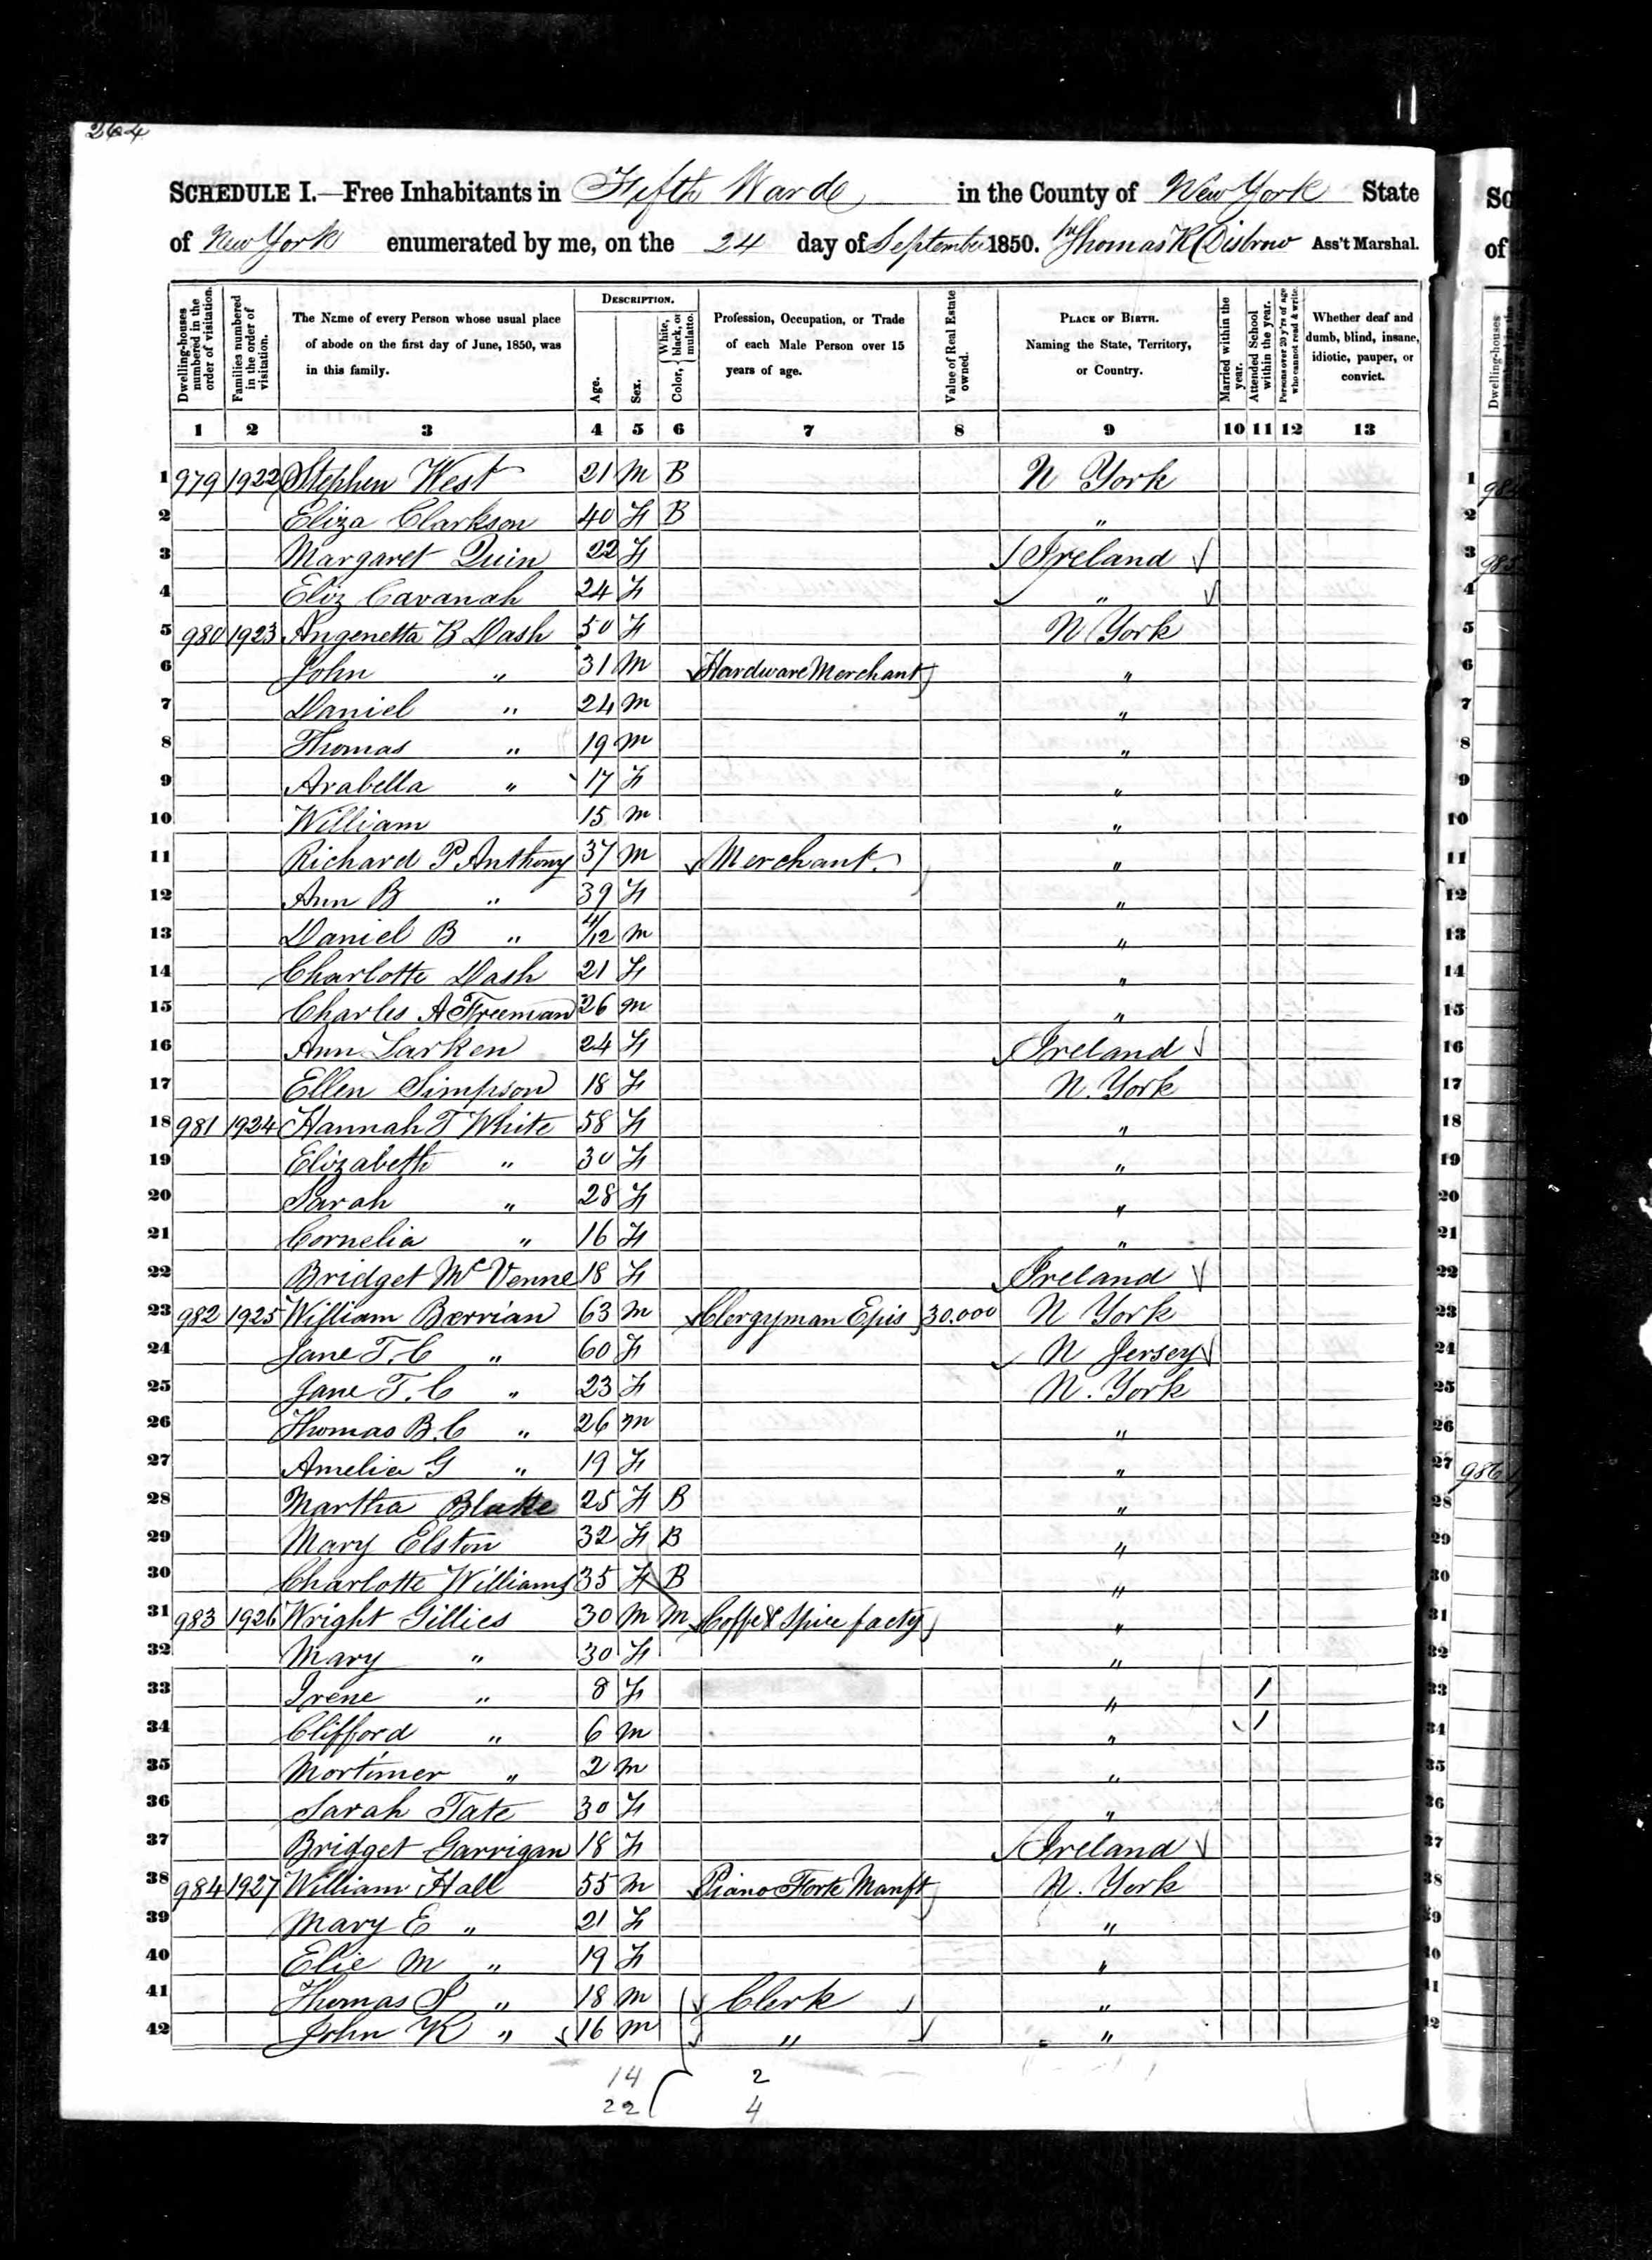 264
SCHEDULE I.—Free Inhabitants in Fifth Ward in the County of New York State
of New York enumerated by me, on the 24 day of September 1850. Thomas R Disbrow Ass't Marshal.
Dwelling-houses numbered in the order of visitation.
Families numbered in the order of visitation.
The Name of every Person whose usual place of abode on the first day of June, 1850, was in this family.
DESCRIPTION.
Age.
Sex.
Color, { White, black, or mulatto.
Profession, Occupation, or Trade of each Male Person over 15 years of age.
Value of Real Estate owned.
PLACE OF BIRTH. Naming the State, Territory, or Country.
Married within the year.
Attended School within the year.
Persons over 20 y'rs of age who cannot read & write.
Whether deaf and dumb, blind, insane, idiotic, pauper, or convict.
1 2 3 4 5 6 7 8 9 10 11 12 13
1 979 1922 Stephen West 21 M B N York
2 Eliza Clarkson 40 F B "
3 Margaret Quin 22 F Ireland
4 Eliz Cavanah 24 F "
5 980 1923 Angenetta B Dash 50 F N York
6 John " 31 M Hardware Merchant "
7 Daniel " 24 m "
8 Thomas " 19 m "
9 Arabella " 17 F "
10 William 15 m "
11 Richard P Anthony 37 m Merchant "
12 Ann B " 39 F "
13 Daniel B " 4/12 m "
14 Charlotte Dash 21 F "
15 Charles A Freeman 26 m "
16 Ann Larken 24 F Ireland
17 Ellen Simpson 18 F N. York
18 981 1924 Hannah T White 58 F "
19 Elizabeth " 30 F "
20 Sarah " 28 F "
21 Cornelia " 16 F "
22 Bridget Mc Venne 18 F Ireland
23 982 1925 William Berrian 63 m Clergyman Epis 30.000 N York
24 Jane T. C " 60 F N Jersey
25 Jane T. C " 23 F N. York
26 Thomas B. C " 26 m "
27 Amelia G " 19 F "
28 Martha Blake 25 F B "
29 Mary Elston 32 F B "
30 Charlotte Williams 35 F B "
31 983 1926 Wright Gillies 30 m m Coffe & Spice facty "
32 Mary " 30 F "
33 Irene " 8 F " 1
34 Clifford " 6 m " 1
35 Mortimer " 2 m "
36 Sarah Tate 30 F "
37 Bridget Garrigan 18 F Ireland
38 984 1927 William Hall 55 m Piano Forte Manft N. York
39 Mary E " 21 F "
40 Elie M " 19 F "
41 Thomas S " 18 m Clerk "
42 John K " 16 m " "
14 2
22 4